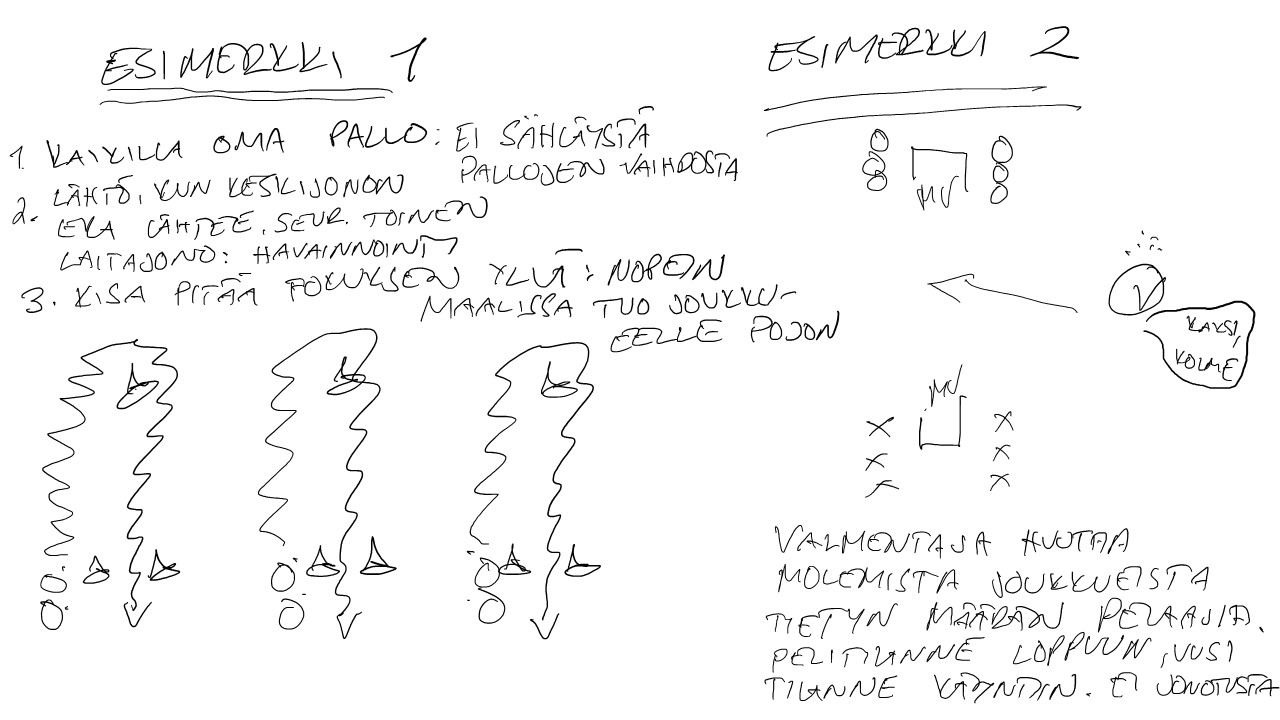 ESIMERKKI 1
1. KAIKILLA OMA PALLO: EI SÄHLÄYSTÄ
PALLOJEN VAIHDOSTA
2. LÄHTÖ, KUN KESKIJONON
EKA LÄHTEE, SEUR. TOINEN
LAITAJONO: HAVAINNOINTI
3. KISA PITÄÄ FOKUKSEN YLLÄ: NOPEIN
MAALISSA TUO JOUKKU-
EELLE POJON
ESIMERKKI 2
MV
V
KAKSI,
KOLME
MV
VALMENTAJA HUUTAA
MOLEMISTA JOUKKUEISTA
TIETYN MÄÄRÄN PELAAJIA.
PELITILANNE LOPPUUN, UUSI
TILANNE KÄYNTIIN. EI JONOTUSTA